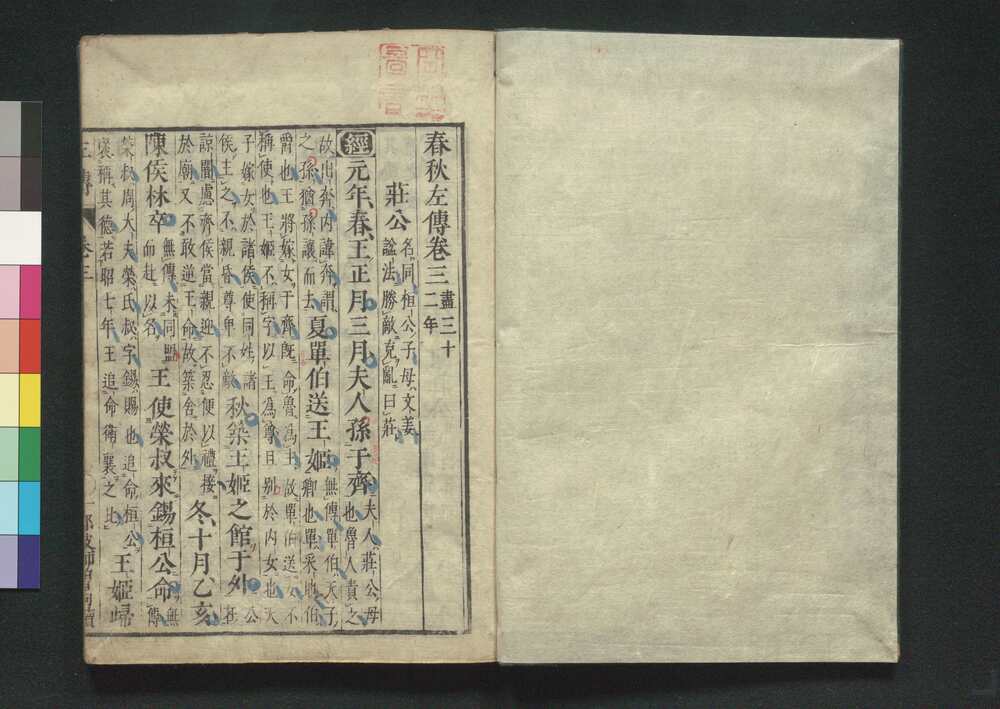 春秋左傳卷三盡三十二年
莊公名同桓公子母文姜謚法勝敵克亂曰莊
經元年春王正月三月夫人孫于齊夫人莊公母也魯人責之
故出奔内諱奔謂之孫猶孫讓而去夏單伯送王姬無傳單伯天子卿也單采地伯
爵也王將嫁女于齊既命魯爲主故單伯送女不稱使也王姬不稱字以王爲尊且別於内女也天
子嫁女於諸侯使同姓諸侯主之不親昏尊卑不敵秋築王姬之館于外公在
諒闇慮齊侯當親迎不忍便以禮接於廟又不敢逆王命故築舍於外冬十月乙亥
陳侯林卒無傳未同盟而赴以名王使榮叔來錫桓公命無傳
榮叔周大夫榮氏叔字錫賜也追命桓公褒稱其德若昭七年王追命衛襄之比王姬歸